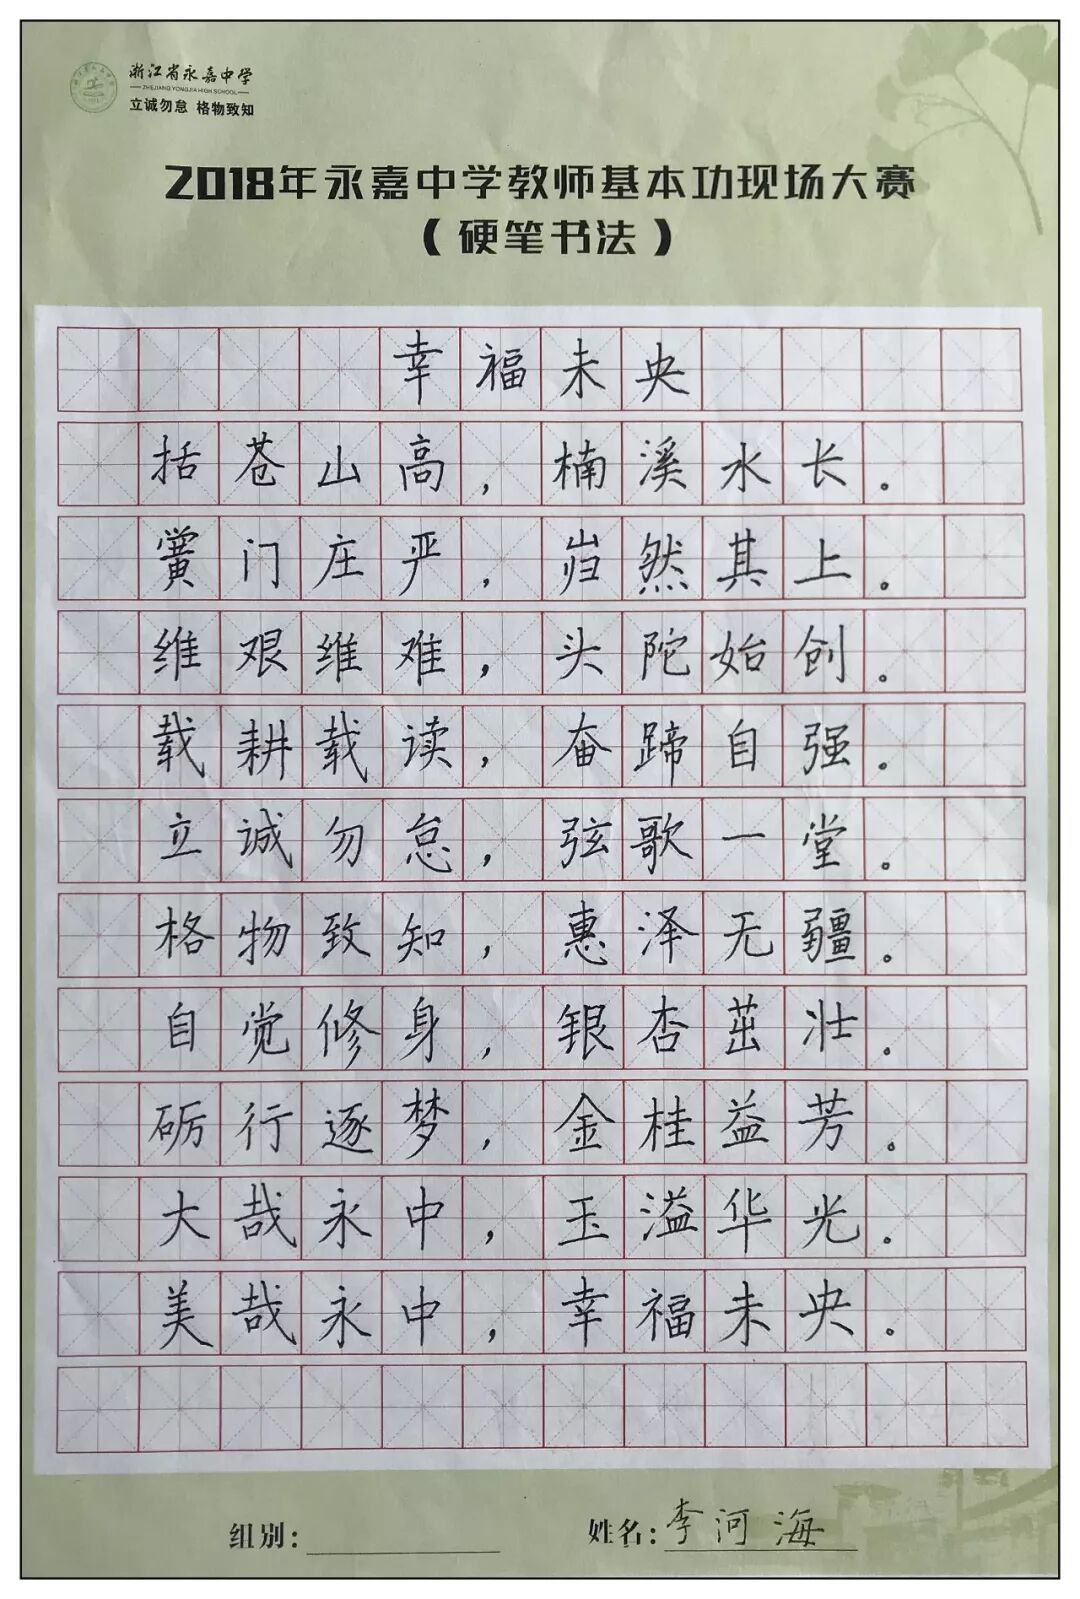 浙江省永嘉中学
ZHEJIANG YONGJIA HIGH SCHOOL
立诚勿怠 格物致知
2018年永嘉中学教师基本功现场大赛
（硬笔书法）
幸福未央
括苍山高，楠溪水长。
黉门庄严，岿然其上。
维艰维难，头陀始创。
载耕载读，奋蹄自强。
立诚勿怠，弦歌一堂。
格物致知，惠泽无疆。
自觉修身，银杏茁壮。
砺行逐梦，金桂益芳。
大哉永中，玉溢华光。
美哉永中，幸福未央。
组别：
姓名：李河海